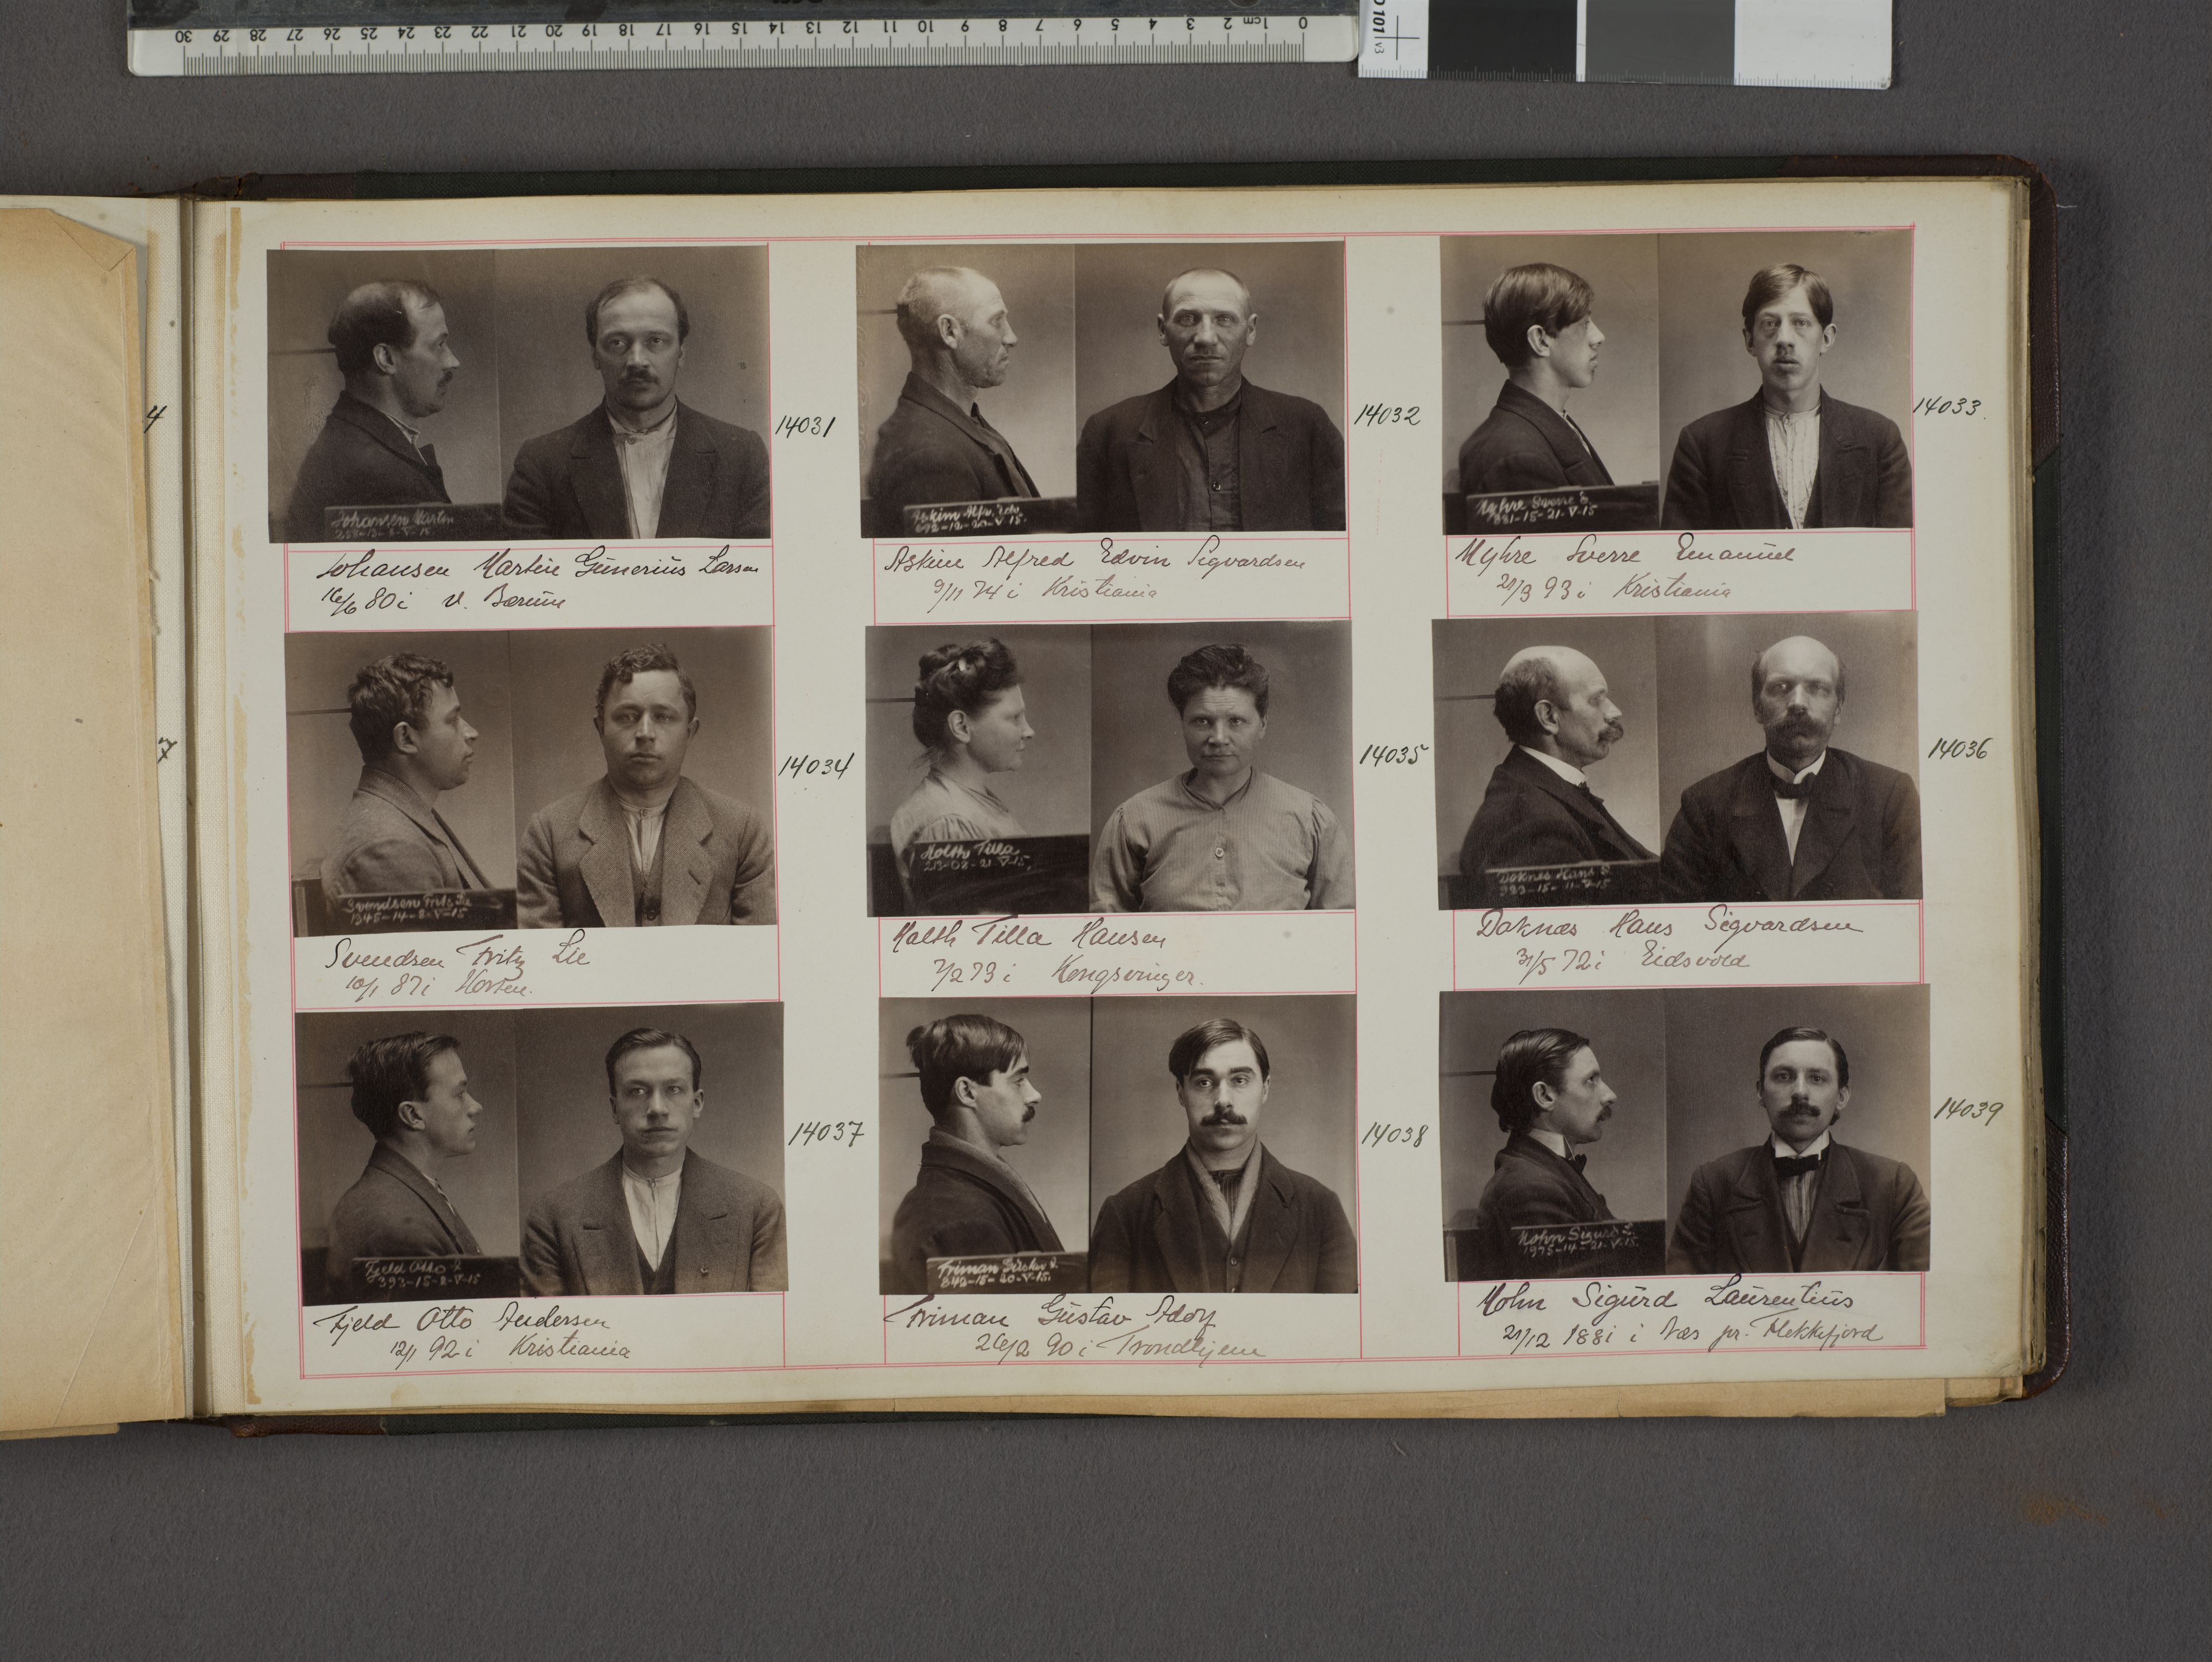 30 29 28 27 26 25 24 23 22 21 20 19 18 17 16 15 14 13 12 11 10 9 8 7 6 5 4 3 2 1cm 0
101 v3
4
7
Johansen Martin
14031
Johansen Martin Gunerius Larsen
16/6 80 i V. Bærum
Askim Alfr. Edv.
692-12-20-V-15.
14032
Askim Alfred Edvin Sigvardsen
9/11 74 i Kristiania
Myhre Sverre E.
881-15-21-V-15
14033
Myhre Sverre Emanuel
21/3 93 i Kristiania
Svendsen Fritz Lie
1345-14-8-V-15
14034
Svendsen Fritz Lie
10/1 87 i Horten.
Holth Tilla
213-08-21-V-15,
14035
Holth Tilla Hansen
7/2 73 i Kongsvinger.
Doknes Hans S.
393-15-11-V-15
14036
Doknæs Hans Sigvardsen
31/5 72 i Eidsvold
Fjeld Otto A.
393-15-8-V-15
14037
Fjeld Otto Andersen
12/1 92 i Kristiania
Friman Gustav A.
842-15-20-V-15.
14038
Friman Gustav Adolf
26/2 90 i Trondhjem
Mohn Sigurd L.
1975-14-21-V-15.
14039
Mohn Sigurd Laurentius
21/12 1881 i Næs pr. Flekkefjord